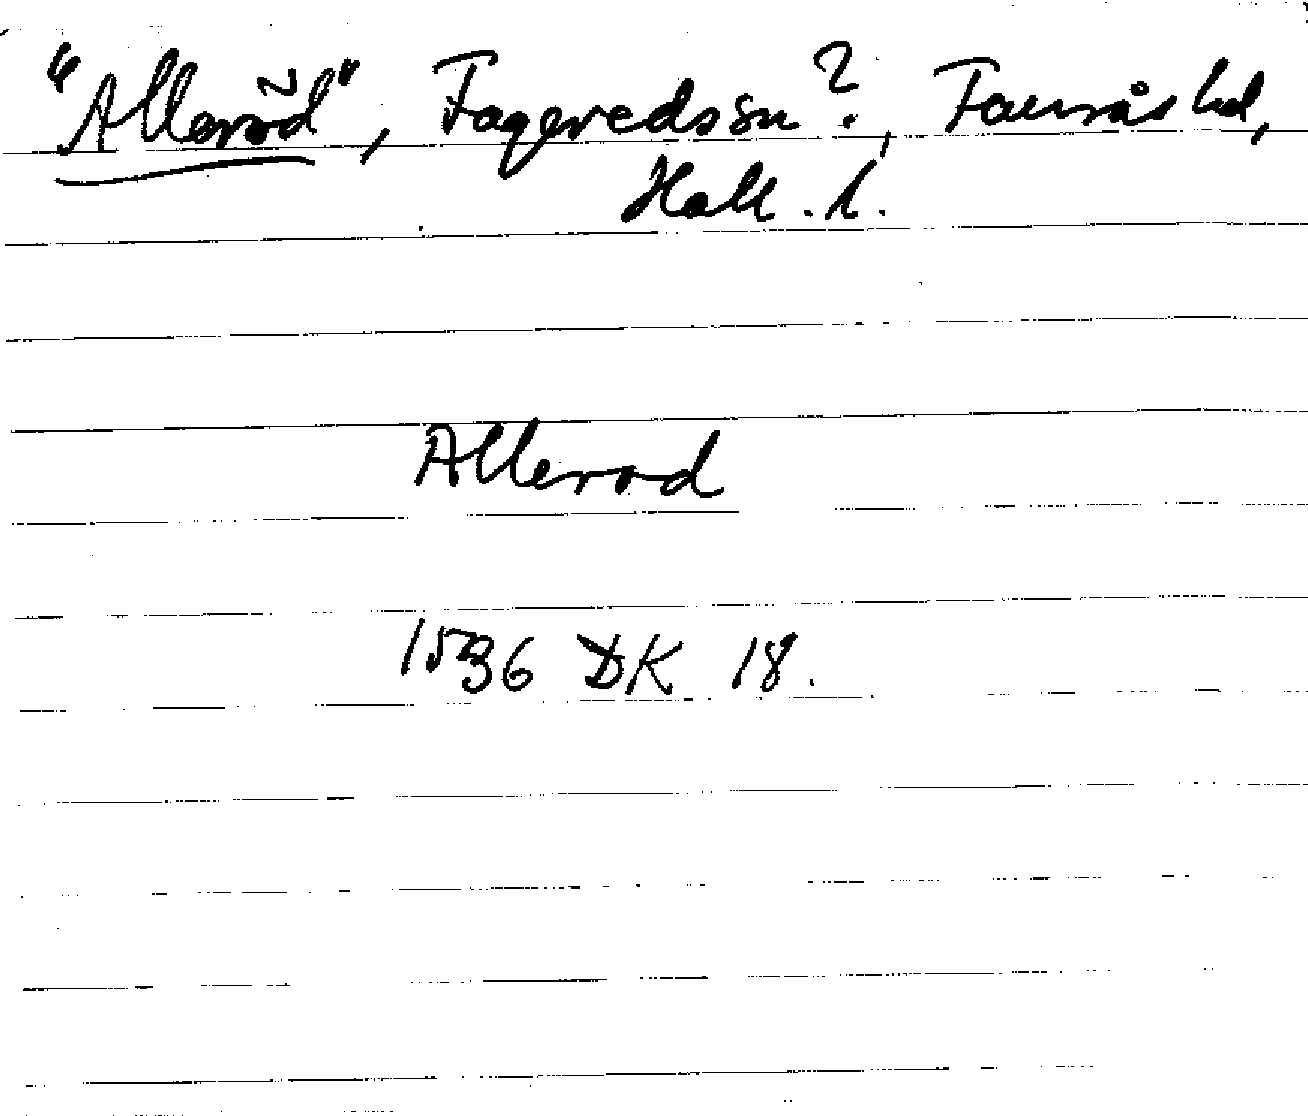 "Alleröd", Fagereds sn?, Faurås hd,
Hall. l.
Allerod
1536 DK 18.